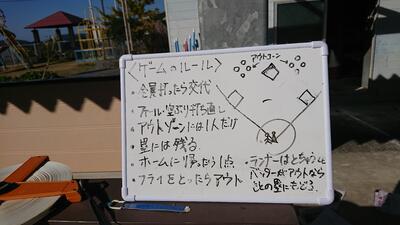 ＜ゲームのルール＞
アウトゾーン
・全員打ったら交代
・ファール・空ぶり打ち直し
・アウトゾーンには1人だけ
・塁には残る
・ホームに帰ったら1点
・フライをとったらアウト
・ランナーはとちゅうで
バッターがアウトなら
もとの塁にもどる。